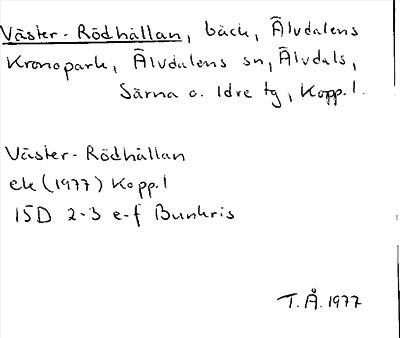 Väster-Rödhällan, bäck, Älvdalens
Kronopark, Älvdalens sn, Älvdals,
Särna o. Idre tg, Kopp. l.
Väster-Rödhällan
ek (1977) Kopp. l
15D 2-3 e-f Bunkris
T.Å. 1977